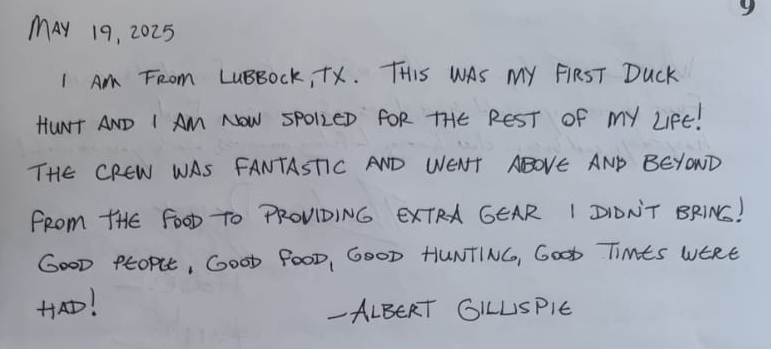 9
MAY 19, 2025
I AM FROM LUBBOCK, TX. THIS WAS MY FIRST DUCK
HUNT AND I AM NOW SPOILED FOR THE REST OF MY LIFE!
THE CREW WAS FANTASTIC AND WENT ABOVE AND BEYOND
FROM THE FOOD TO PROVIDING EXTRA GEAR I DIDN'T BRING!
GOOD PEOPLE, GOOD FOOD, GOOD HUNTING, GOOD TIMES WERE
HAD! —ALBERT GILLISPIE